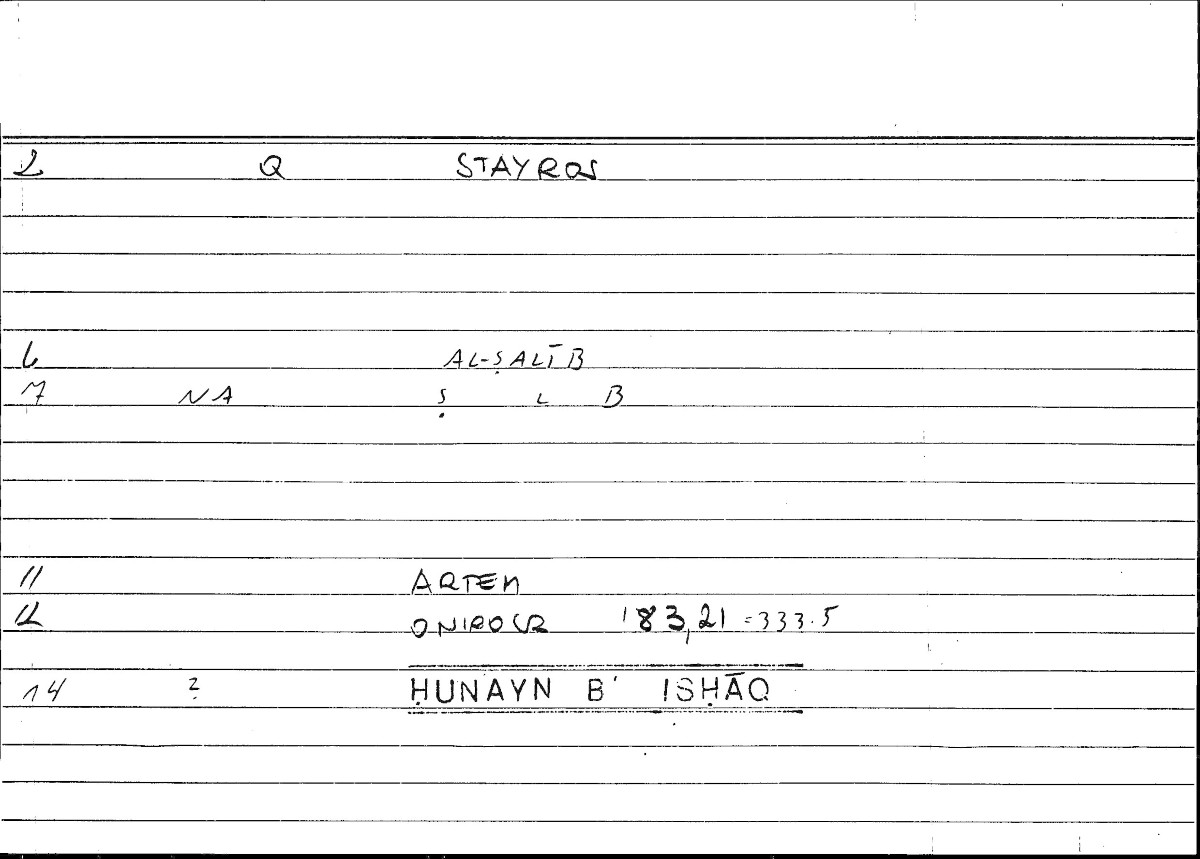 2 Q STAYROS
6 AL-ṢALĪB
7 NA Ṣ L B
11 ARTEM
12 ONIROCR 183,21 = 333.5
14 ? ḤUNAYN B' ISḤĀQ